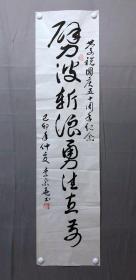 恭祝國庆五十周年纪念
劈波斩浪勇往直前
己卯年仲夏 书